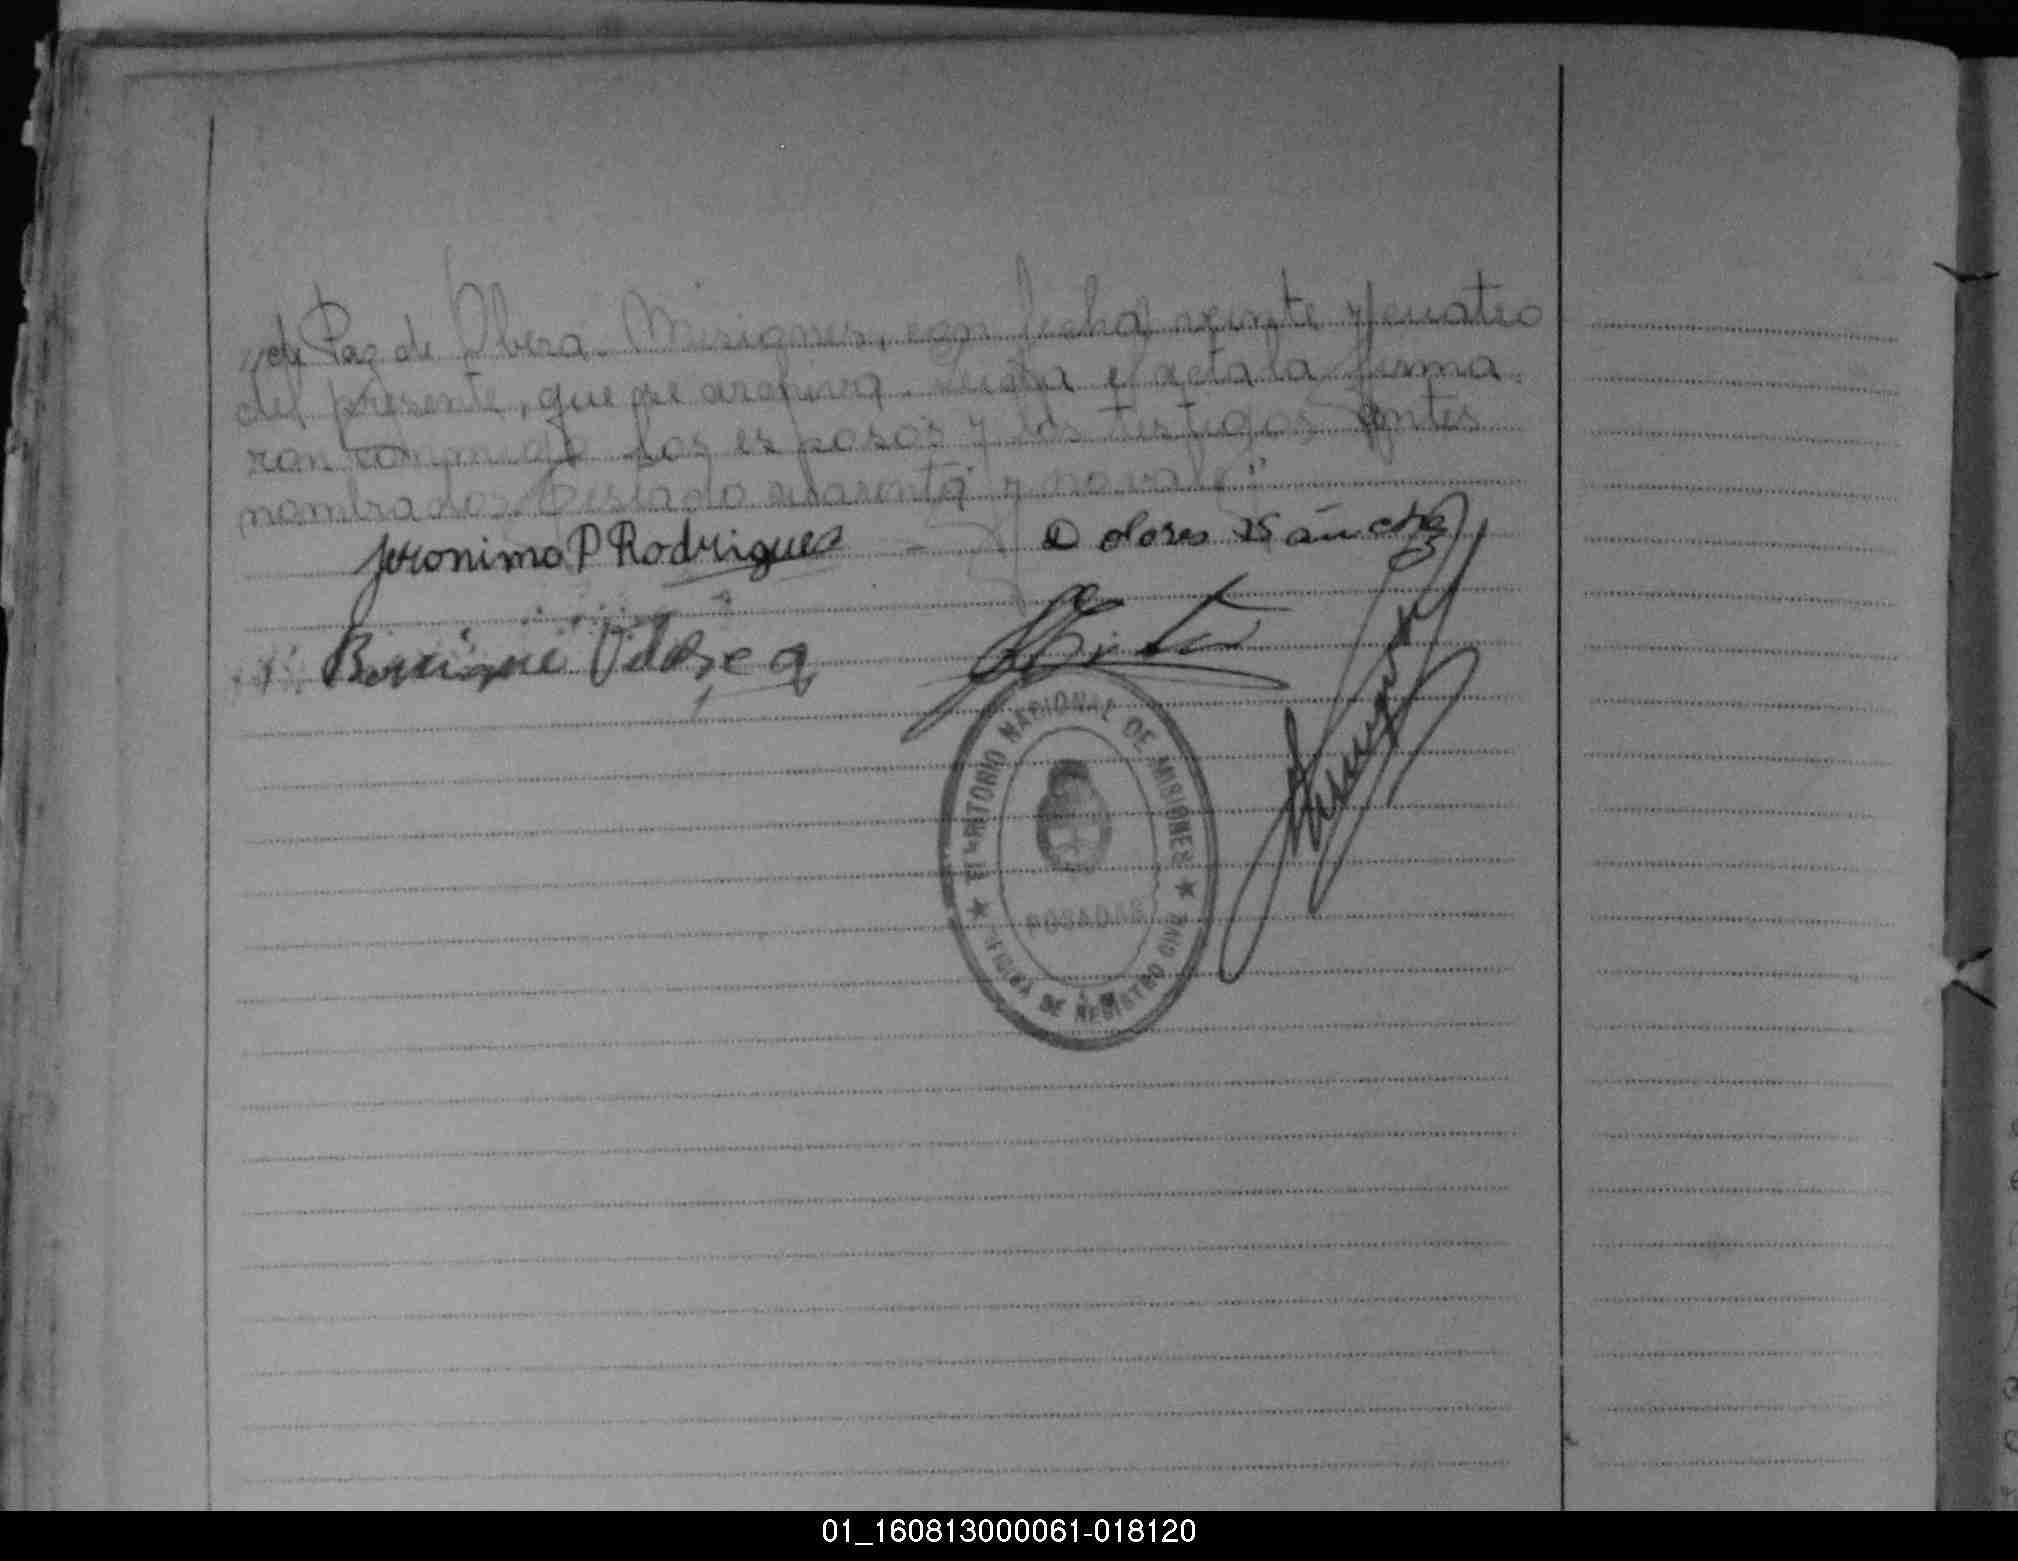 //de Paz de Obera. Misiones, con fecha veinte y cuatro
del presente, que se archiva. Leida el acta la firma
ron conmigo los esposos y los testigos antes
nombrados. Testado no vale"
Jeronimo P Rodrigues Dolores Sánchez
TERRITORIO NACIONAL DE MISIONES
POSADAS
OFICINA DE REGISTRO CIVIL
01_160813000061-018120